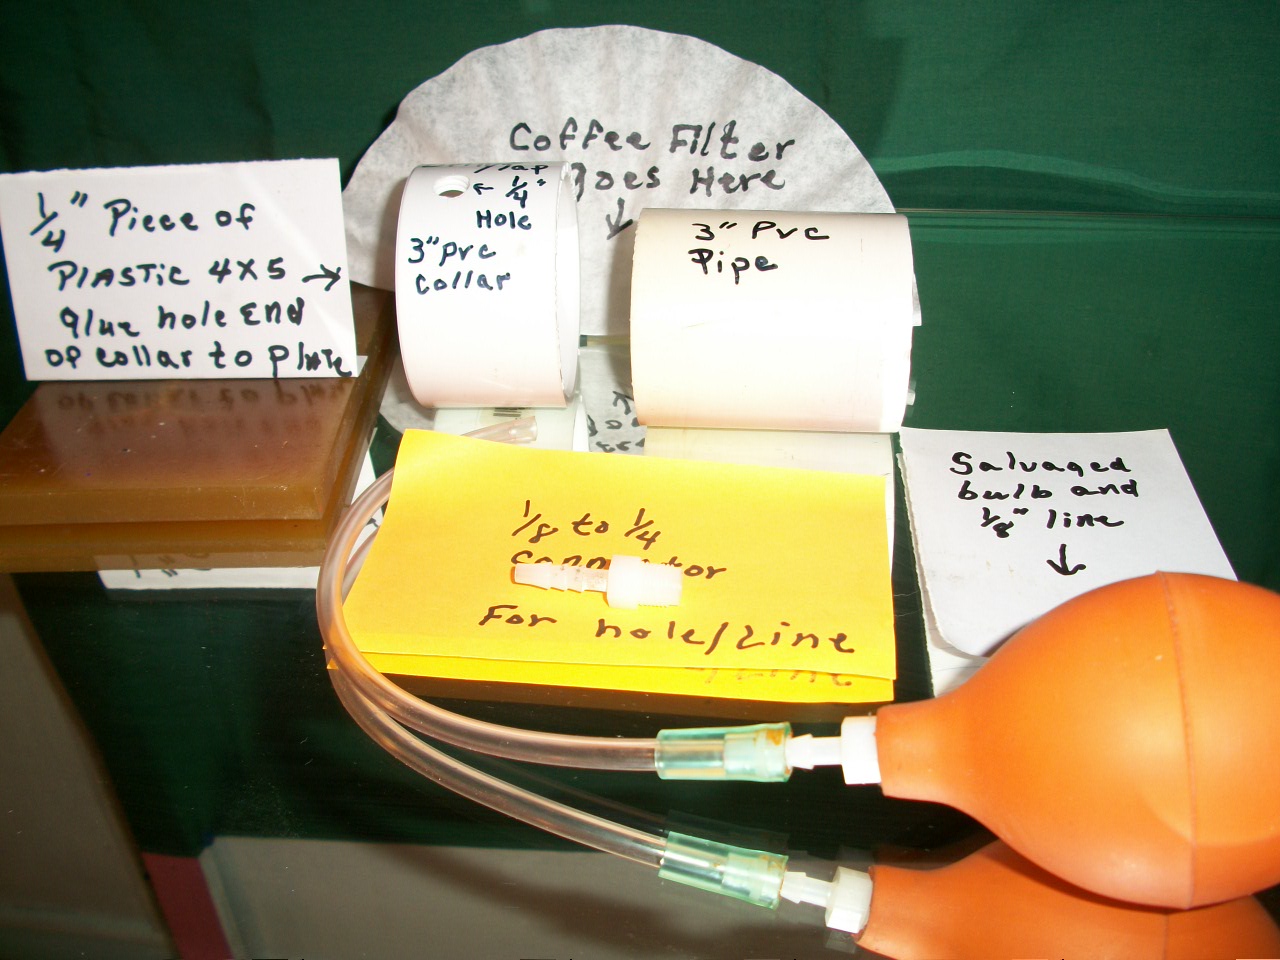 1/4" Piece of
PLASTIC 4X5 →
glue hole End
of collar to PLATE
Coffee Filter
Goes Here
↓
← 1/4"
Hole
3" pvc
collar
3" Pvc
Pipe
1/8 to 1/4
For hole/Line
Salvaged
bulb and
1/8" line
↓